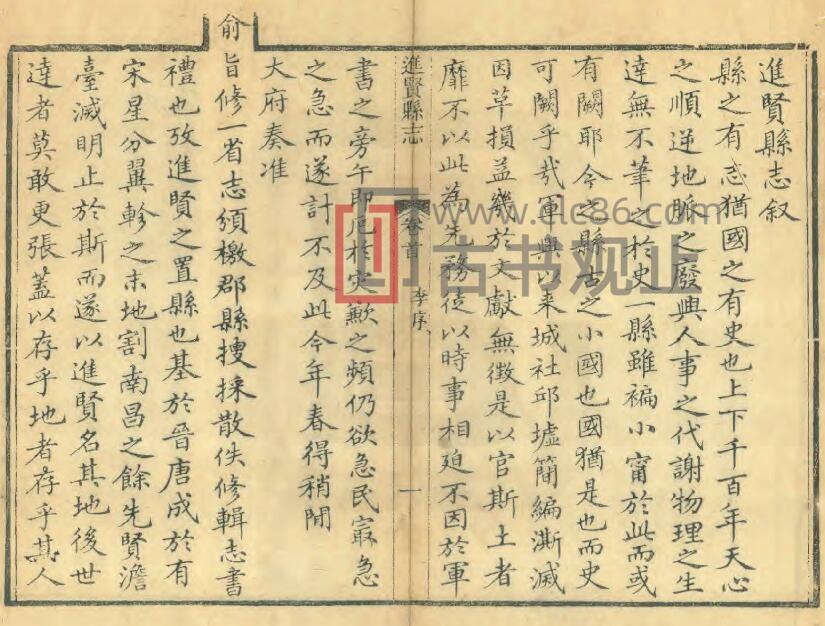 進賢縣志叙
縣之有志猶國之有史也上下千百年天心
之順逆地脈之廢興人事之代謝物理之生
達無不筆之於史一縣雖褊小甯於此而或
有闕耶今之縣古之小國也國猶是也而史
可闕乎哉軍興以来城社邱墟簡編澌滅
因草損益幾於文獻無徵是以官斯土者
靡不以此為先務徒以時事相廹不因於軍
進賢縣志
卷首
李序
一
書之旁午即厄於灾歉之頻仍欲急民㝡急
之急而遂計不及此今年春得稍閒
大府奏准
俞旨修一省志頒檄郡縣搜採散佚修輯志書
禮也攷進賢之置縣也基於晉唐成於有
宋星分翼軫之末地割南昌之餘先賢澹
臺滅明止於斯而遂以進賢名其地後世
達者莫敢更張蓋以存乎地者存乎其人
www.dlc86.com
古书观止